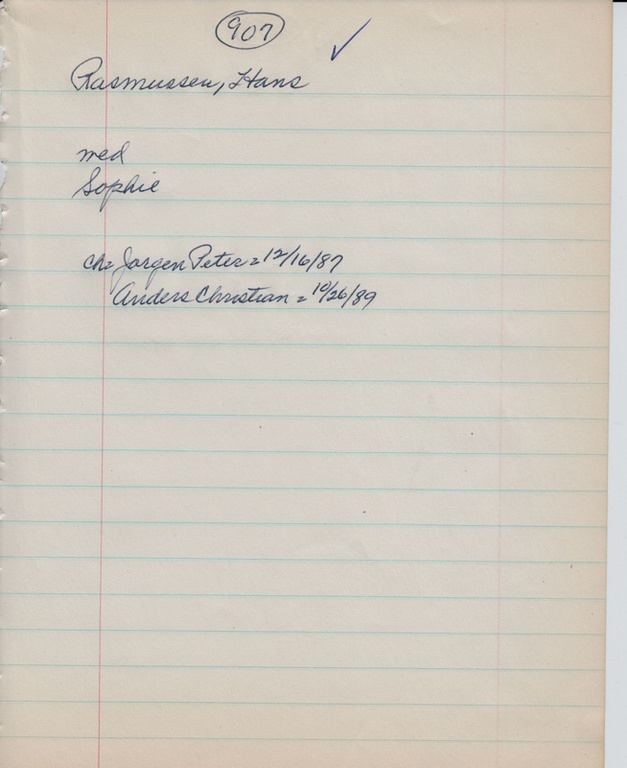 907
Rasmussen, Hans
med
Sophie
ch = Jorgen Peter = 12/16/87
Anders Christian = 10/26/89